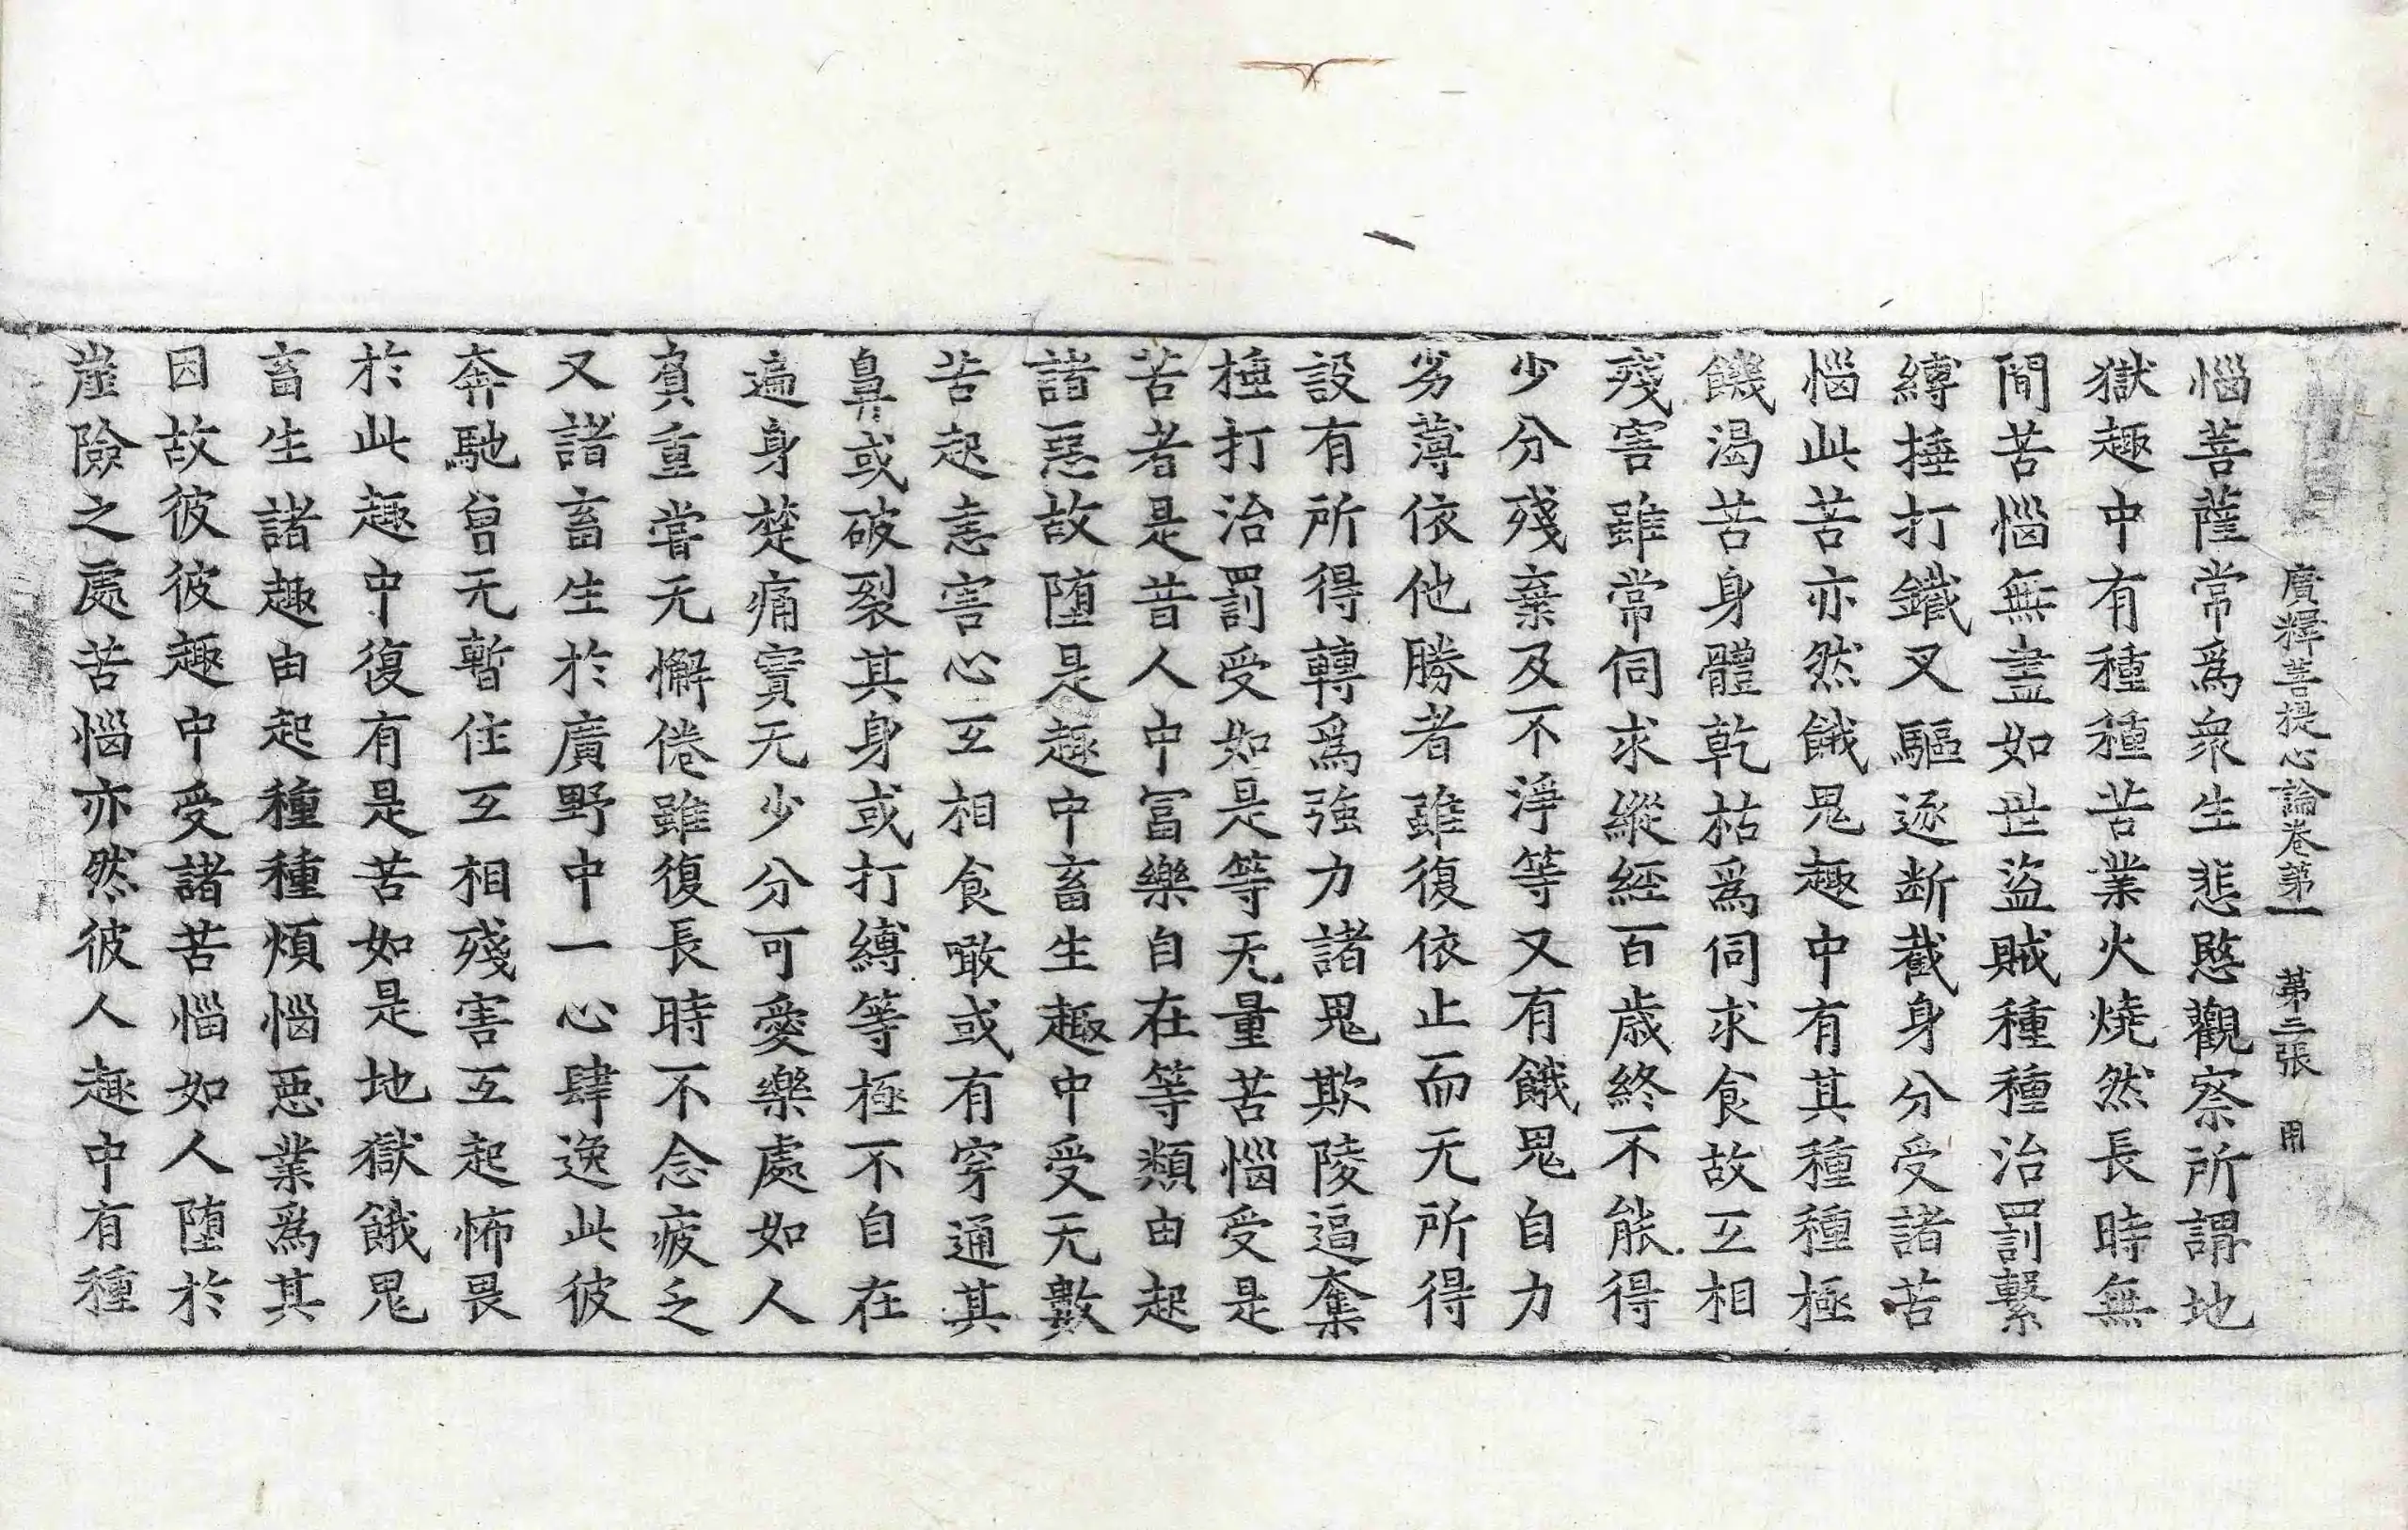 廣釋菩提心論卷第一 第三張 用
惱菩薩常爲衆生悲愍觀察所謂地
獄趣中有種種苦業火燒然長時無
間苦惱無盡如世盜賊種種治罰繫
縛捶打鐵叉驅逐断截身分受諸苦
惱此苦亦然餓鬼趣中有其種種極
飢渴苦身體乾枯爲伺求食故互相
殘害雖常伺求縱經百歲終不能得
少分殘棄及不淨等又有餓鬼自力
劣薄依他勝者雖復依止而无所得
設有所得轉爲強力諸鬼欺陵逼奪
捶打治罰受如是等无量苦惱受是
苦者是昔人中富樂自在等類由起
諸惡故墮是趣中畜生趣中受无數
苦起恚害心互相食噉或有穿通其
鼻或破裂其身或打縛等極不自在
遍身楚痛實无少分可愛樂處如人
負重嘗无懈倦雖復長時不念疲乏
又諸畜生於廣野中一心肆逸此彼
奔馳曾无暫住互相殘害互起怖畏
於此趣中復有是苦如是地獄餓鬼
畜生諸趣由起種種煩惱惡業爲其
因故彼彼趣中受諸苦惱如人墮於
崖險之處苦惱亦然彼人趣中有種